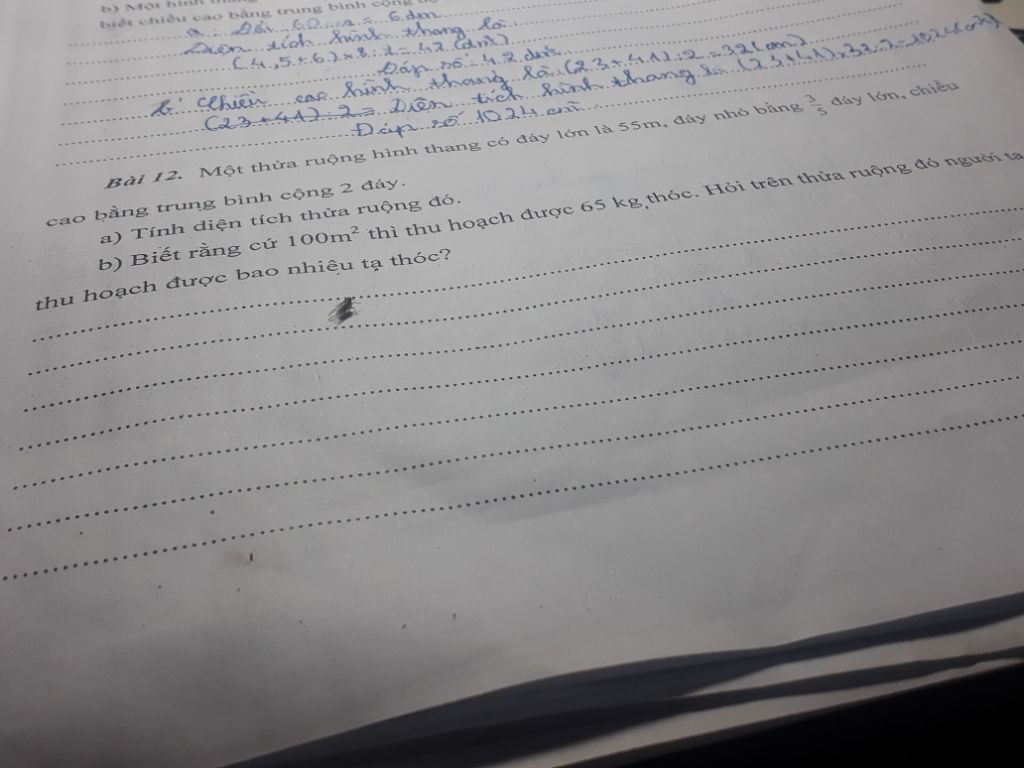 b) Một hình thang
biết chiều cao bằng trung bình cộng
a: Đổi: 60 = 6 dm
Diện tích hình thang là
(4,5 + 6) x 8 : 2 = 42 (dm²)
Đáp số: 42 dm²
b: Chiều cao hình thang là: (23 + 41) : 2 = 32 (cm)
(23 + 41) : 2 = Diện tích hình thang là (23 + 41) x 32 : 2 = 1024 (cm²)
Đáp số 1024 cm²
Bài 12. Một thửa ruộng hình thang có đáy lớn là 55m, đáy nhỏ bằng 3/5 đáy lớn, chiều
cao bằng trung bình cộng 2 đáy.
a) Tính diện tích thửa ruộng đó.
b) Biết rằng cứ 100m² thì thu hoạch được 65 kg thóc. Hỏi trên thửa ruộng đó người ta
thu hoạch được bao nhiêu tạ thóc?